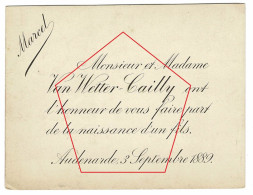 Marcel
Monsieur et Madame
Van Wetter-Cailly ont
l'honneur de vous faire part
de la naissance d'un fils.
Audenarde, 3 Septembre 1889.